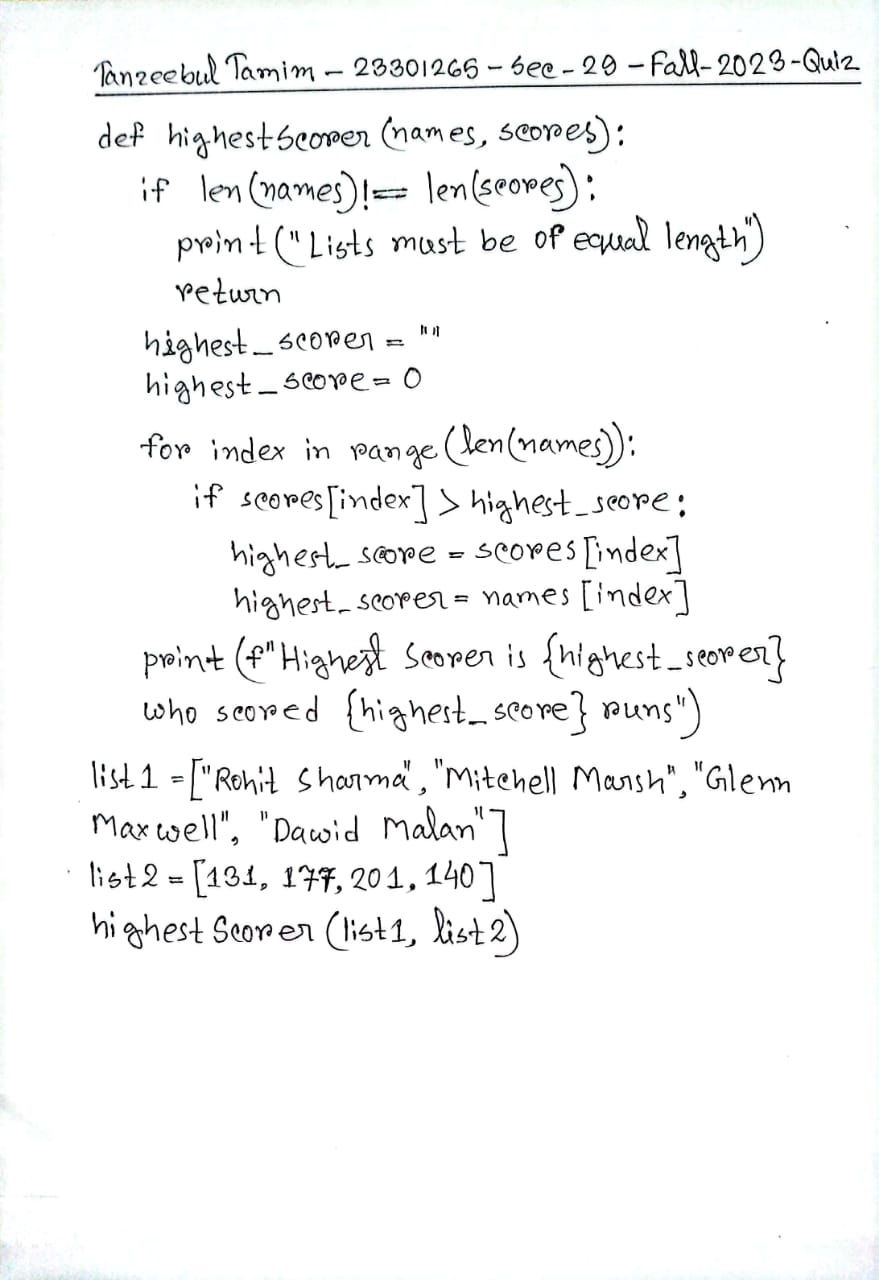 Tanzeebul Tamim - 23301265 - Sec - 29 - Fall-2023-Quiz
def highestScorer (names, scores):
if len(names)!== len(scores):
print("Lists must be of equal length")
return
highest_scorer = ""
highest_score = 0
for index in range (len(names)):
if scores[index] > highest_score:
highest_score = scores [index]
highest_scorer = names [index]
print (f"Highest Scorer is {highest_scorer}
who scored {highest_score} runs")
list1 = ["Rohit Sharma", "Mitchell Marsh", "Glenn
Maxwell", "Dawid Malan"]
list2 = [131, 177, 201, 140]
highest Scorer (list1, list2)